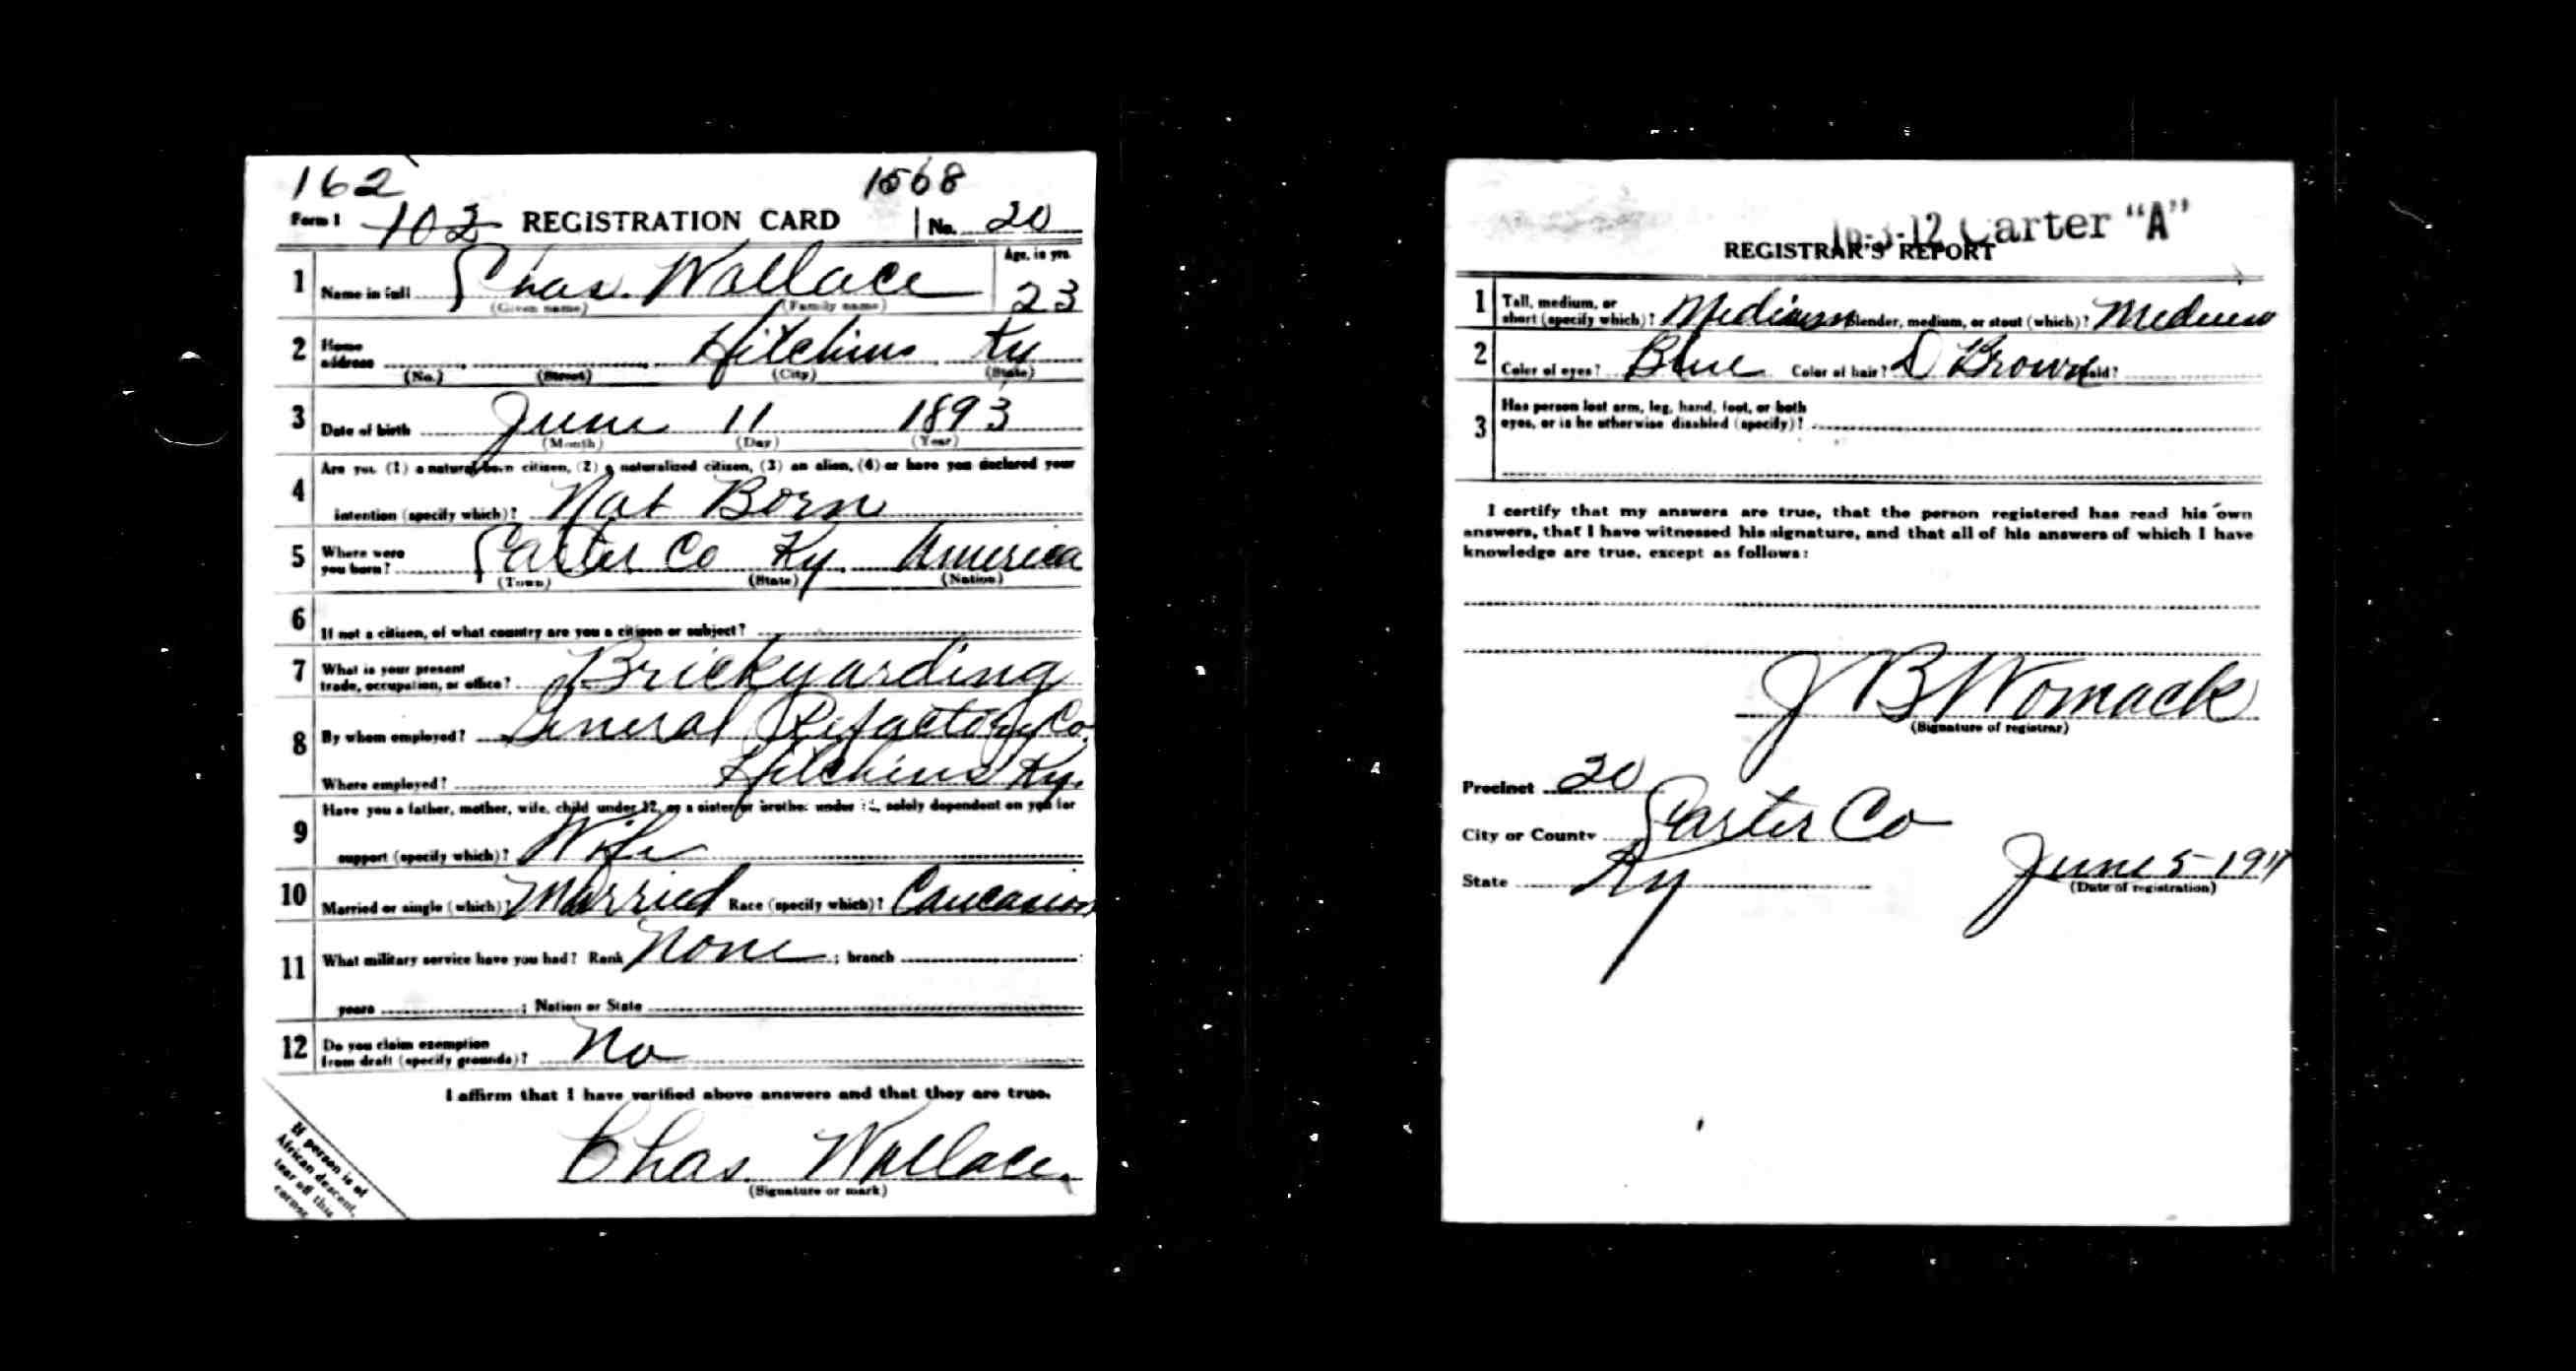 162 1568
Form 1 102 REGISTRATION CARD No. 20
1 Name in full Chas. Wallace Age, in yrs. 23
(Given name) (Family name)
2 Home address Hitchins Ky
(No.) (Street) (City) (State)
3 Date of birth June 11 1893
(Month) (Day) (Year)
4 Are you (1) a natural-born citizen, (2) a naturalized citizen, (3) an alien, (4) or have you declared your
intention (specify which)? Nat Born
5 Where were you born? Carter Co Ky. America
(Town) (State) (Nation)
6 If not a citizen, of what country are you a citizen or subject?
7 What is your present trade, occupation, or office? Brickyarding
8 By whom employed? General Refactory Co.
Where employed? Hitchins Ky.
9 Have you a father, mother, wife, child under 12, or a sister or brother under 12, solely dependent on you for
support (specify which)? Wife
10 Married or single (which)? Married Race (specify which)? Caucasion
11 What military service have you had? Rank None ; branch
years ; Nation or State
12 Do you claim exemption from draft (specify grounds)? No
I affirm that I have verified above answers and that they are true.
Chas. Wallace.
(Signature or mark)
If person is of
African descent,
tear off this
corner.
16-3-12 Carter "A"
REGISTRAR'S REPORT
1 Tall, medium, or short (specify which)? Medium Slender, medium, or stout (which)? Medium
2 Color of eyes? Blue Color of hair? D Brown Bald?
3 Has person lost arm, leg, hand, foot, or both
eyes, or is he otherwise disabled (specify)?
I certify that my answers are true, that the person registered has read his own
answers, that I have witnessed his signature, and that all of his answers of which I have
knowledge are true, except as follows:
J B Womack
(Signature of registrar)
Precinct 20
City or County Carter Co
State Ky June 5-1917
(Date of registration)